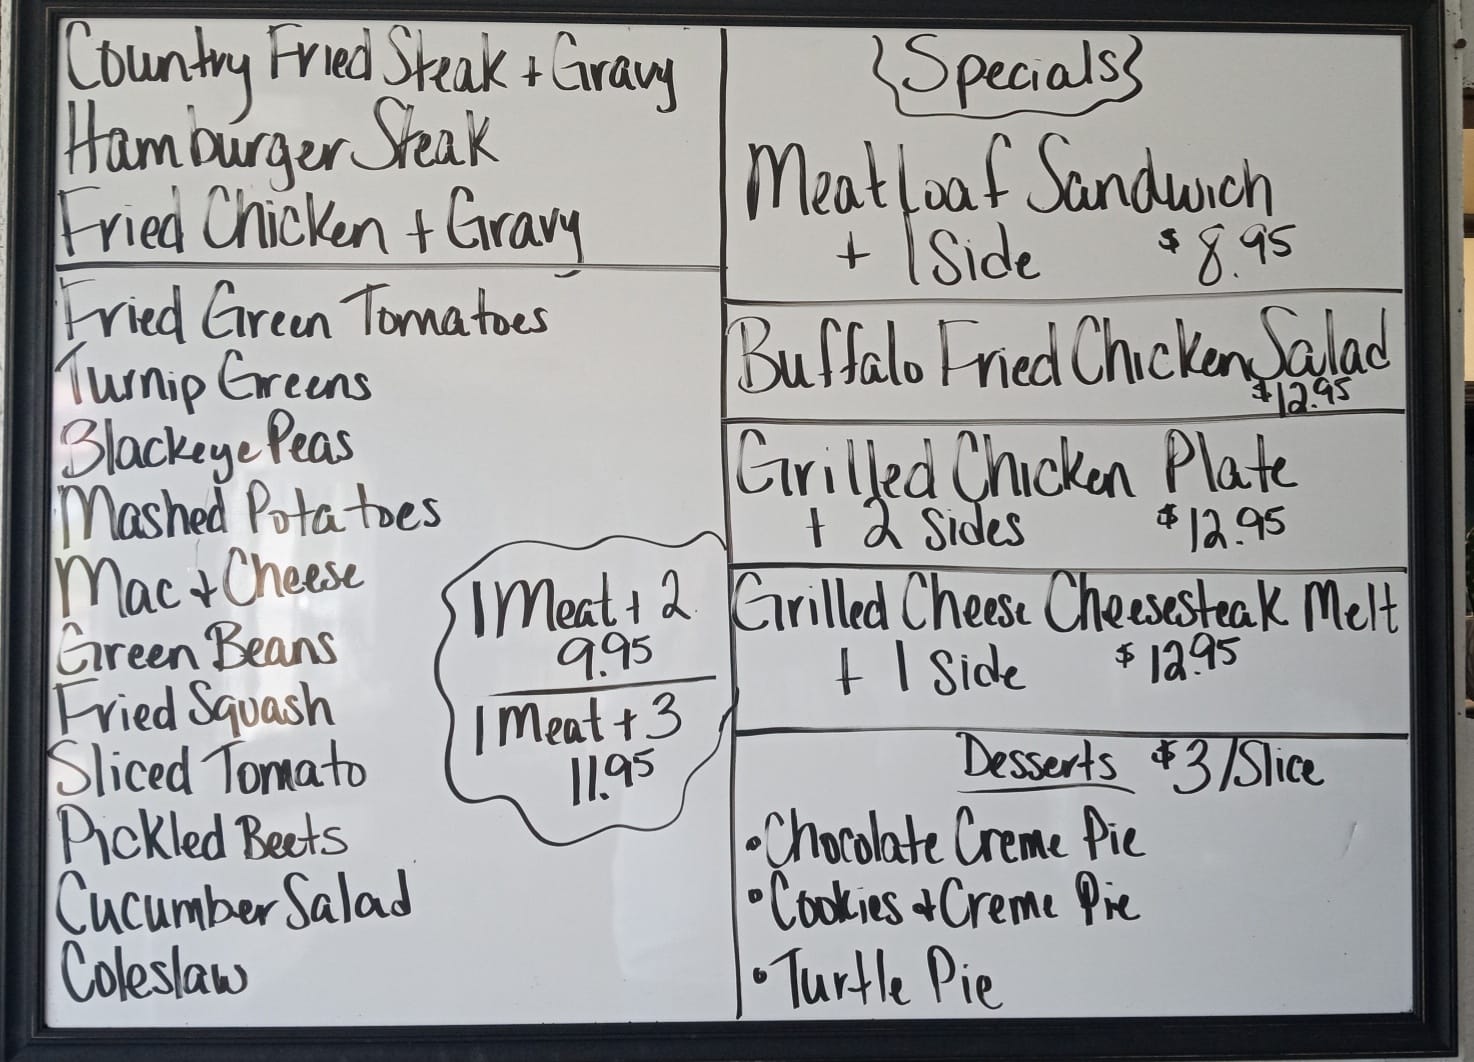 Country Fried Steak + Gravy
Hamburger Steak
Fried Chicken + Gravy
Fried Green Tomatoes
Turnip Greens
Blackeye Peas
Mashed Potatoes
Mac + Cheese
Green Beans
Fried Squash
Sliced Tomato
Pickled Beets
Cucumber Salad
Coleslaw
1 Meat + 2
9.95
1 Meat + 3
11.95
{Specials}
Meatloaf Sandwich
+ 1 Side $8.95
Buffalo Fried Chicken Salad
$12.95
Grilled Chicken Plate
+ 2 Sides $12.95
Grilled Cheese Cheesesteak Melt
+ 1 Side $12.95
Desserts $3/Slice
• Chocolate Creme Pie
• Cookies + Creme Pie
• Turtle Pie